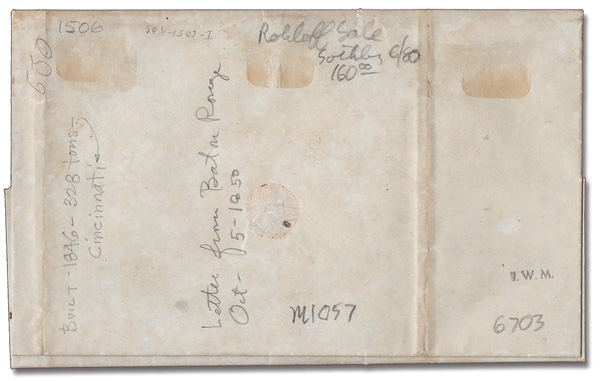 1506
600
Rohloff Sale
Sothby 6/80
160 00
Built - 1846 - 328 tons -
Cincinnati
Letter from Baton Rouge
Oct - 15 - 1850
M1057
I.W.M.
6703